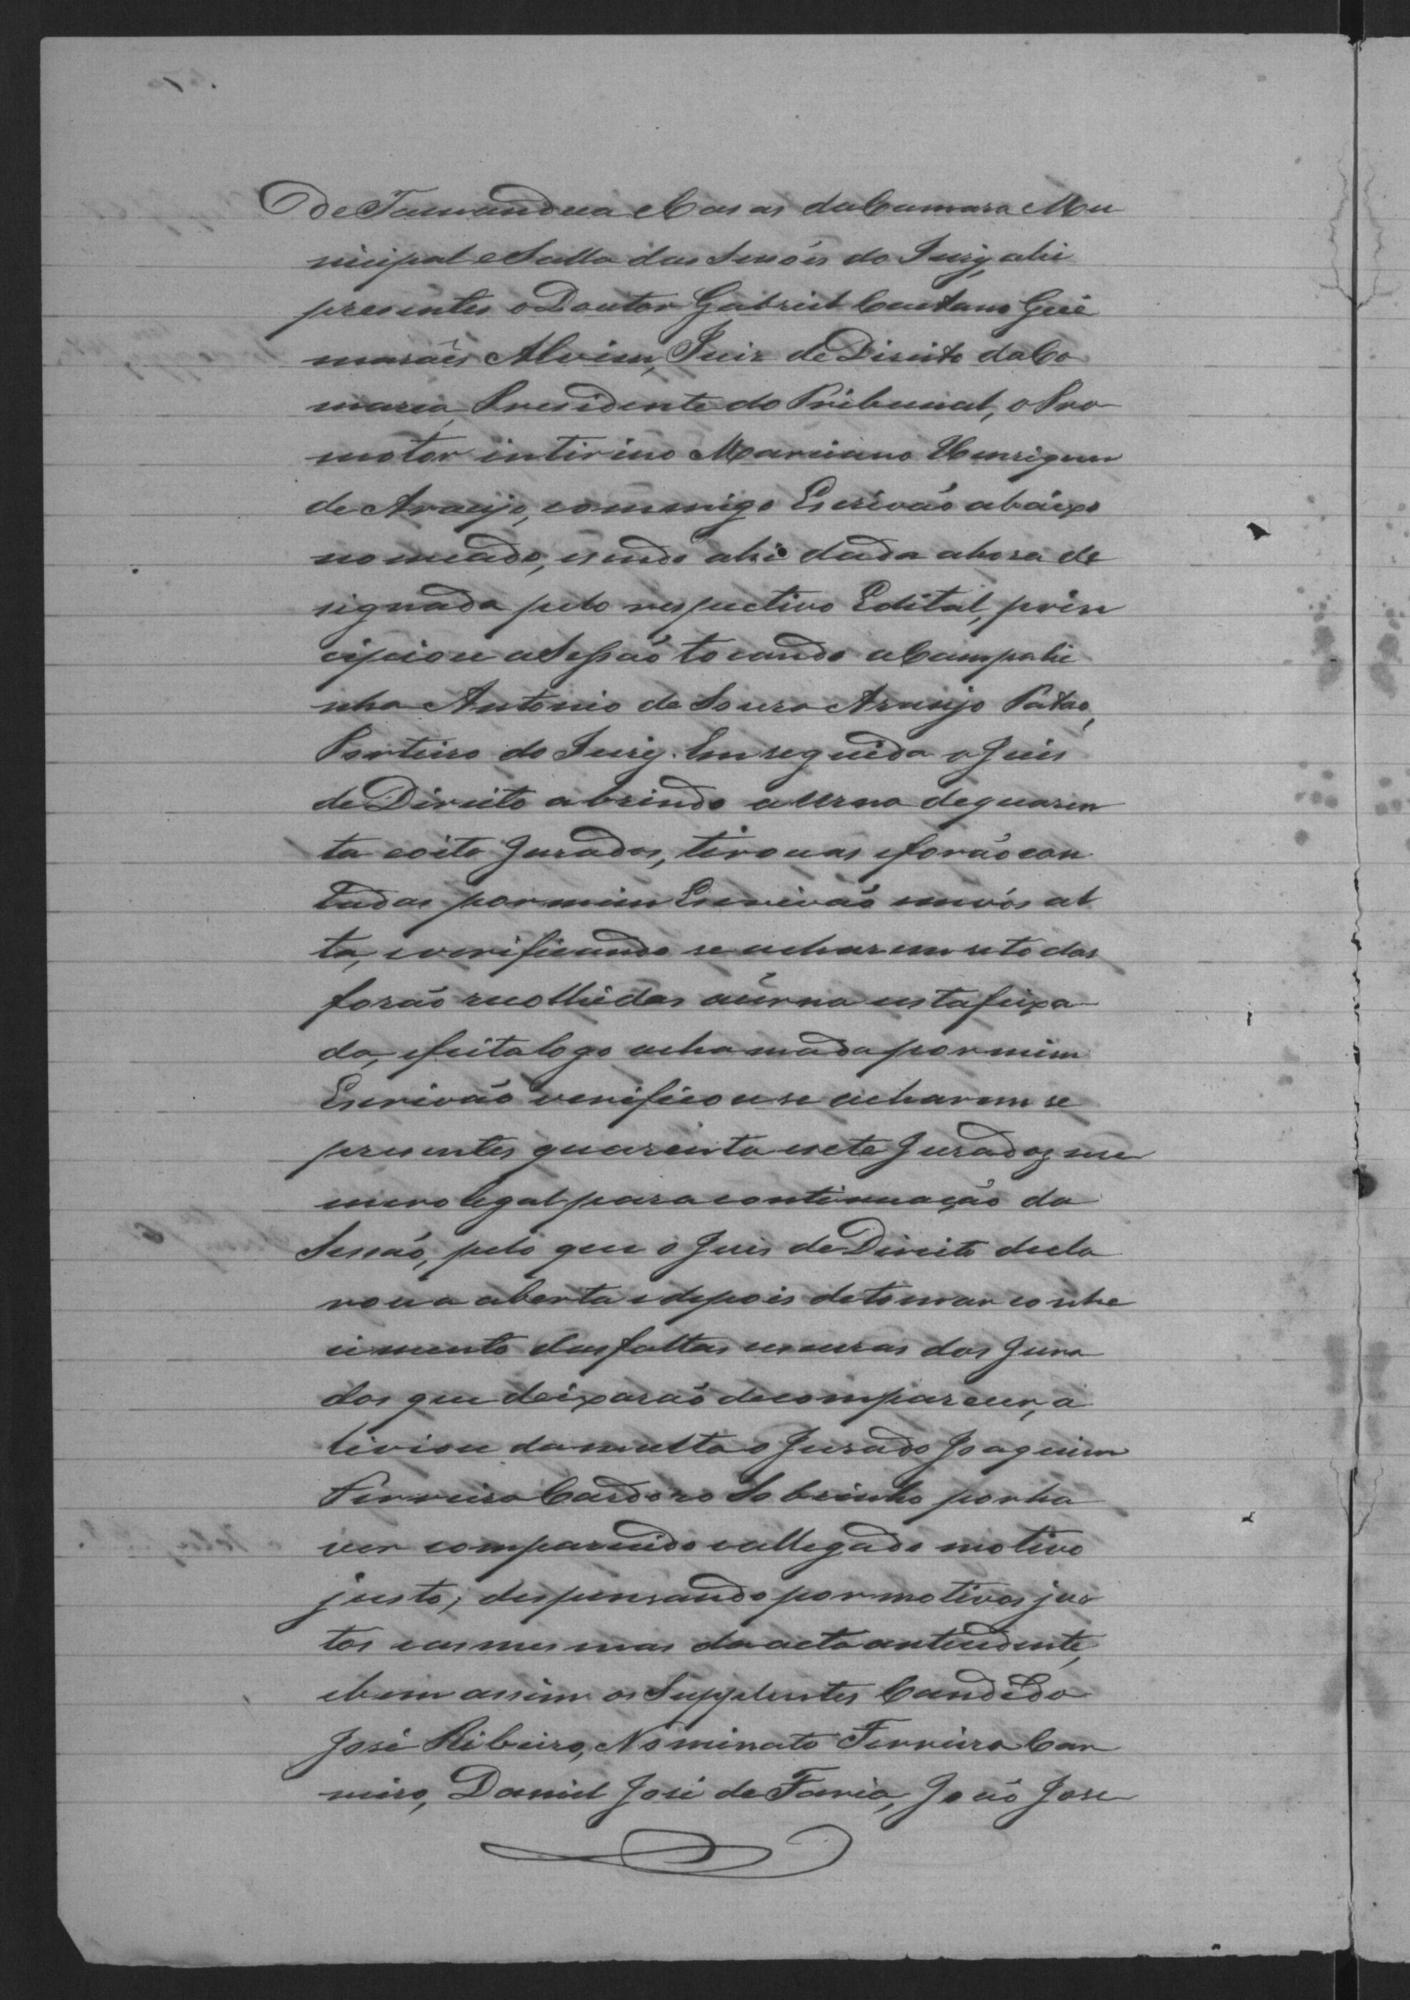 de Tamanduá e Casas da Camara Mu
nicipal e Salla das Sessões do Jury, ahi
presentes o Doutor Gabriel Caetano Gui
marães Alvim, Juiz de Direito da Co
marca, Presidente do Tribunal, o Pro
motor intirino Marciano Henriques
de Araujo, commigo Escrivão abaixo
nomeado, e sendo ahi dada a hora de
signada pelo respectivo Edital, prin
cipiou a Sessão tocando a Campahi
nha Antonio de Souza Araujo Patao,
Porteiro do Jury. Em seguida o Juis
de Direito abrindo a urna de quaren
ta e oito Jurados, tirou as e forão con
tadas por mim Escrivão em vós al
ta, e verificando se acharem se todas
forão recolhidas a urna e esta feixa
da, e feita logo a chamada por mim
Escrivão verificou se acharem se
presentes quarenta e sete Jurados nu
mero legal para continuação da
Sessão, pelo que o Juis de Direito decla
rou a aberta e depois de tomar conhe
cimento das faltas e escuzas dos Jura
dos que deixarão de comparecer, a
liviou da multa o Jurado Joaquim
Ferreira Cardozo Sobrinho por ha
ver comparecido e allegado motivo
justo; despensando por motivos jus
tos e os mesmos da acta antecedente,
e bem assim os Supplentes Candido
José Ribeiro, Nominato Ferreira Car
neiro, Daniel José de Faria, João José